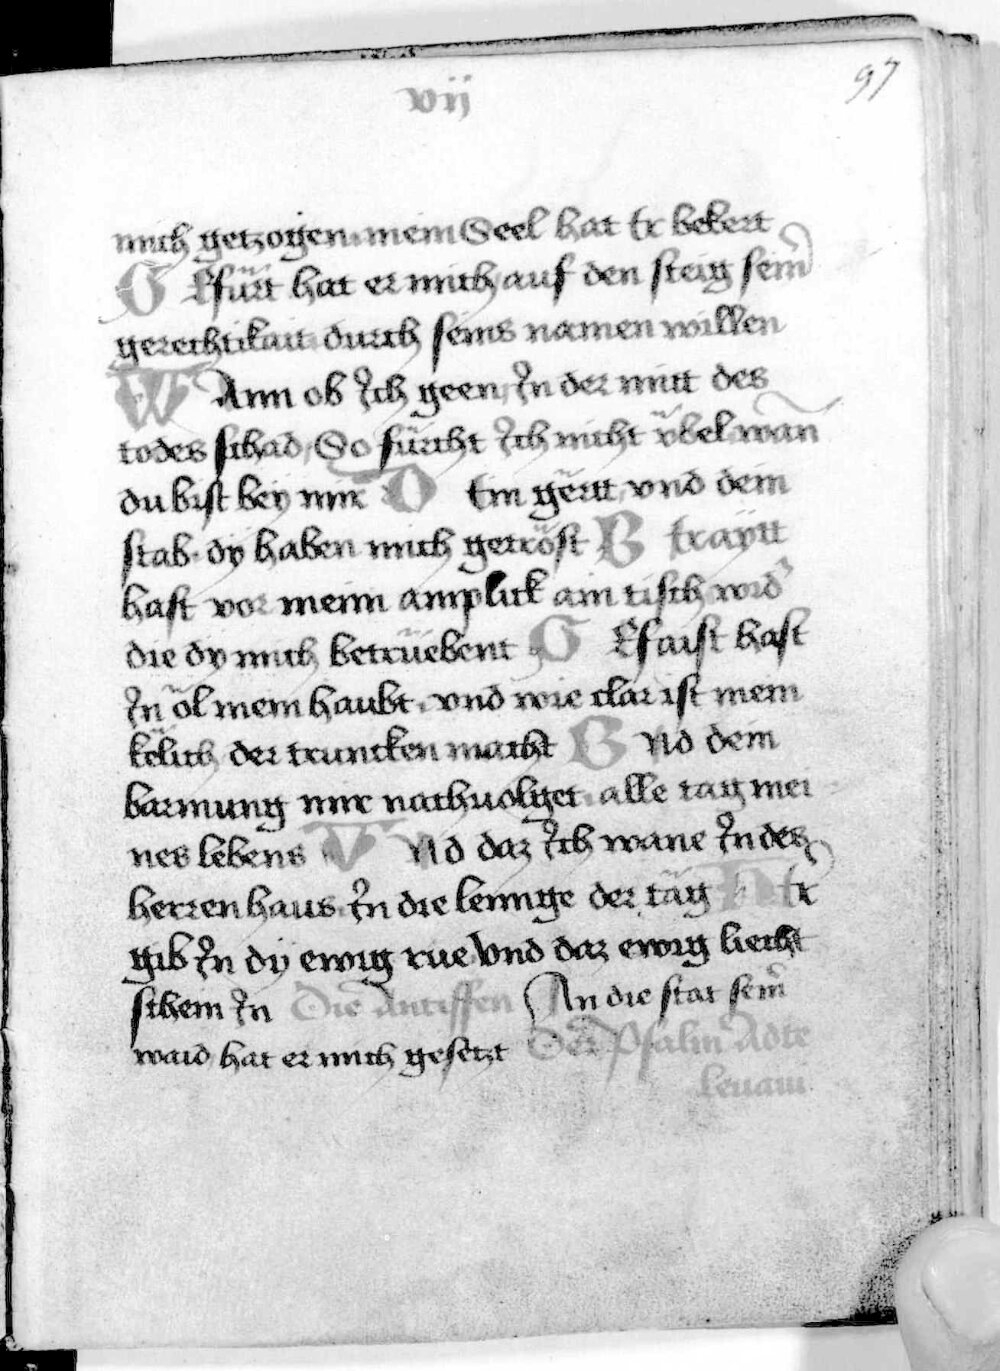 vij
97
mich getzogen mein Seel hat Er bekert
GEfürt hat er mich auf den steig seinˀ
gerechtikait durch seins namen willen
WAnn ob Ich geen In der mitt des
todes schad So fürcht Ich nicht vbel wan̄
du bist bey mir DEin gërtt vnd dein
stab dÿ haben mich getröst BEraÿtt
hast vor meim amplick ain tisch wid̾
die dy mich betrüebent GEfaist hast
In öl mein haubt vnd wie clar ist mein
kelich der truncken macht VNd dein
barmung mir nachuolget alle tag mei
nes lebens VNd daz Ich wane In des
herren haus In die lennge der täg HEr
gib In dÿ ewig rue Vnd daz ewig liecht
schein In Die Antiffen An die stat seinˀ
waid hat er mich gesetzt Der Psalm Ad te
leuaui